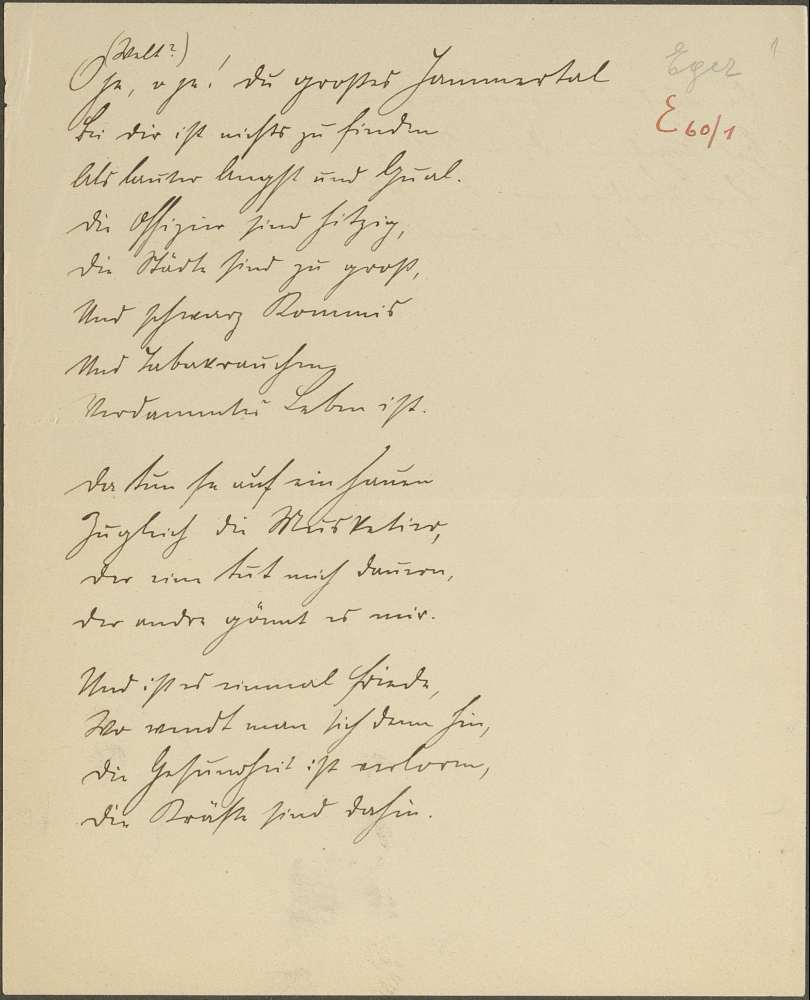 (Welt?)
O je, o je! du großes Jammertal
Bei dir ist nichts zu finden
Als lauter Angst und Qual.
Die Offizier sind hitzig,
Die Städte sind zu groß,
Und schwarz Kommis
Und Tabakrauchen
Verdammtes Leben ist.
Da tun se auf ein hauen
Zugleich die Musketier,
Der eine tut mich dauern,
Der andre gönnt es mir.
Und ist es einmal Friede,
Wo wendt man sich denn hin,
Die Gesundheit ist verloren,
Die Kräfte sind dahin.
Eger
1
E 60/1